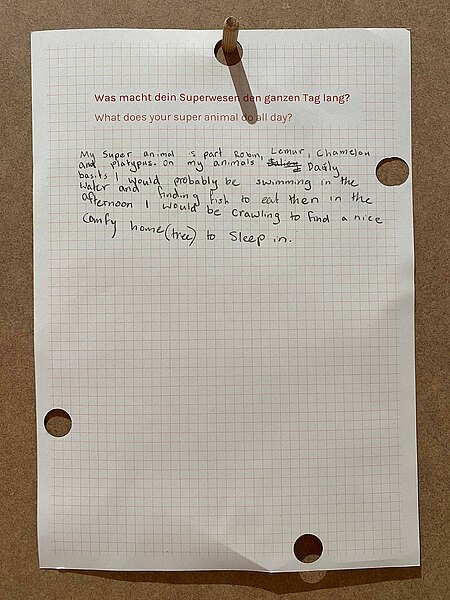 Was macht dein Superwesen den ganzen Tag lang?
What does your super animal do all day?
My Super animal is part Robin, Lemur, Chamelon
and platypus. On my animals Daily
basits I would probably be swimming in the
water and finding fish to eat then in the
afternoon I would be crawling to find a nice
Comfy home (tree) to Sleep in.